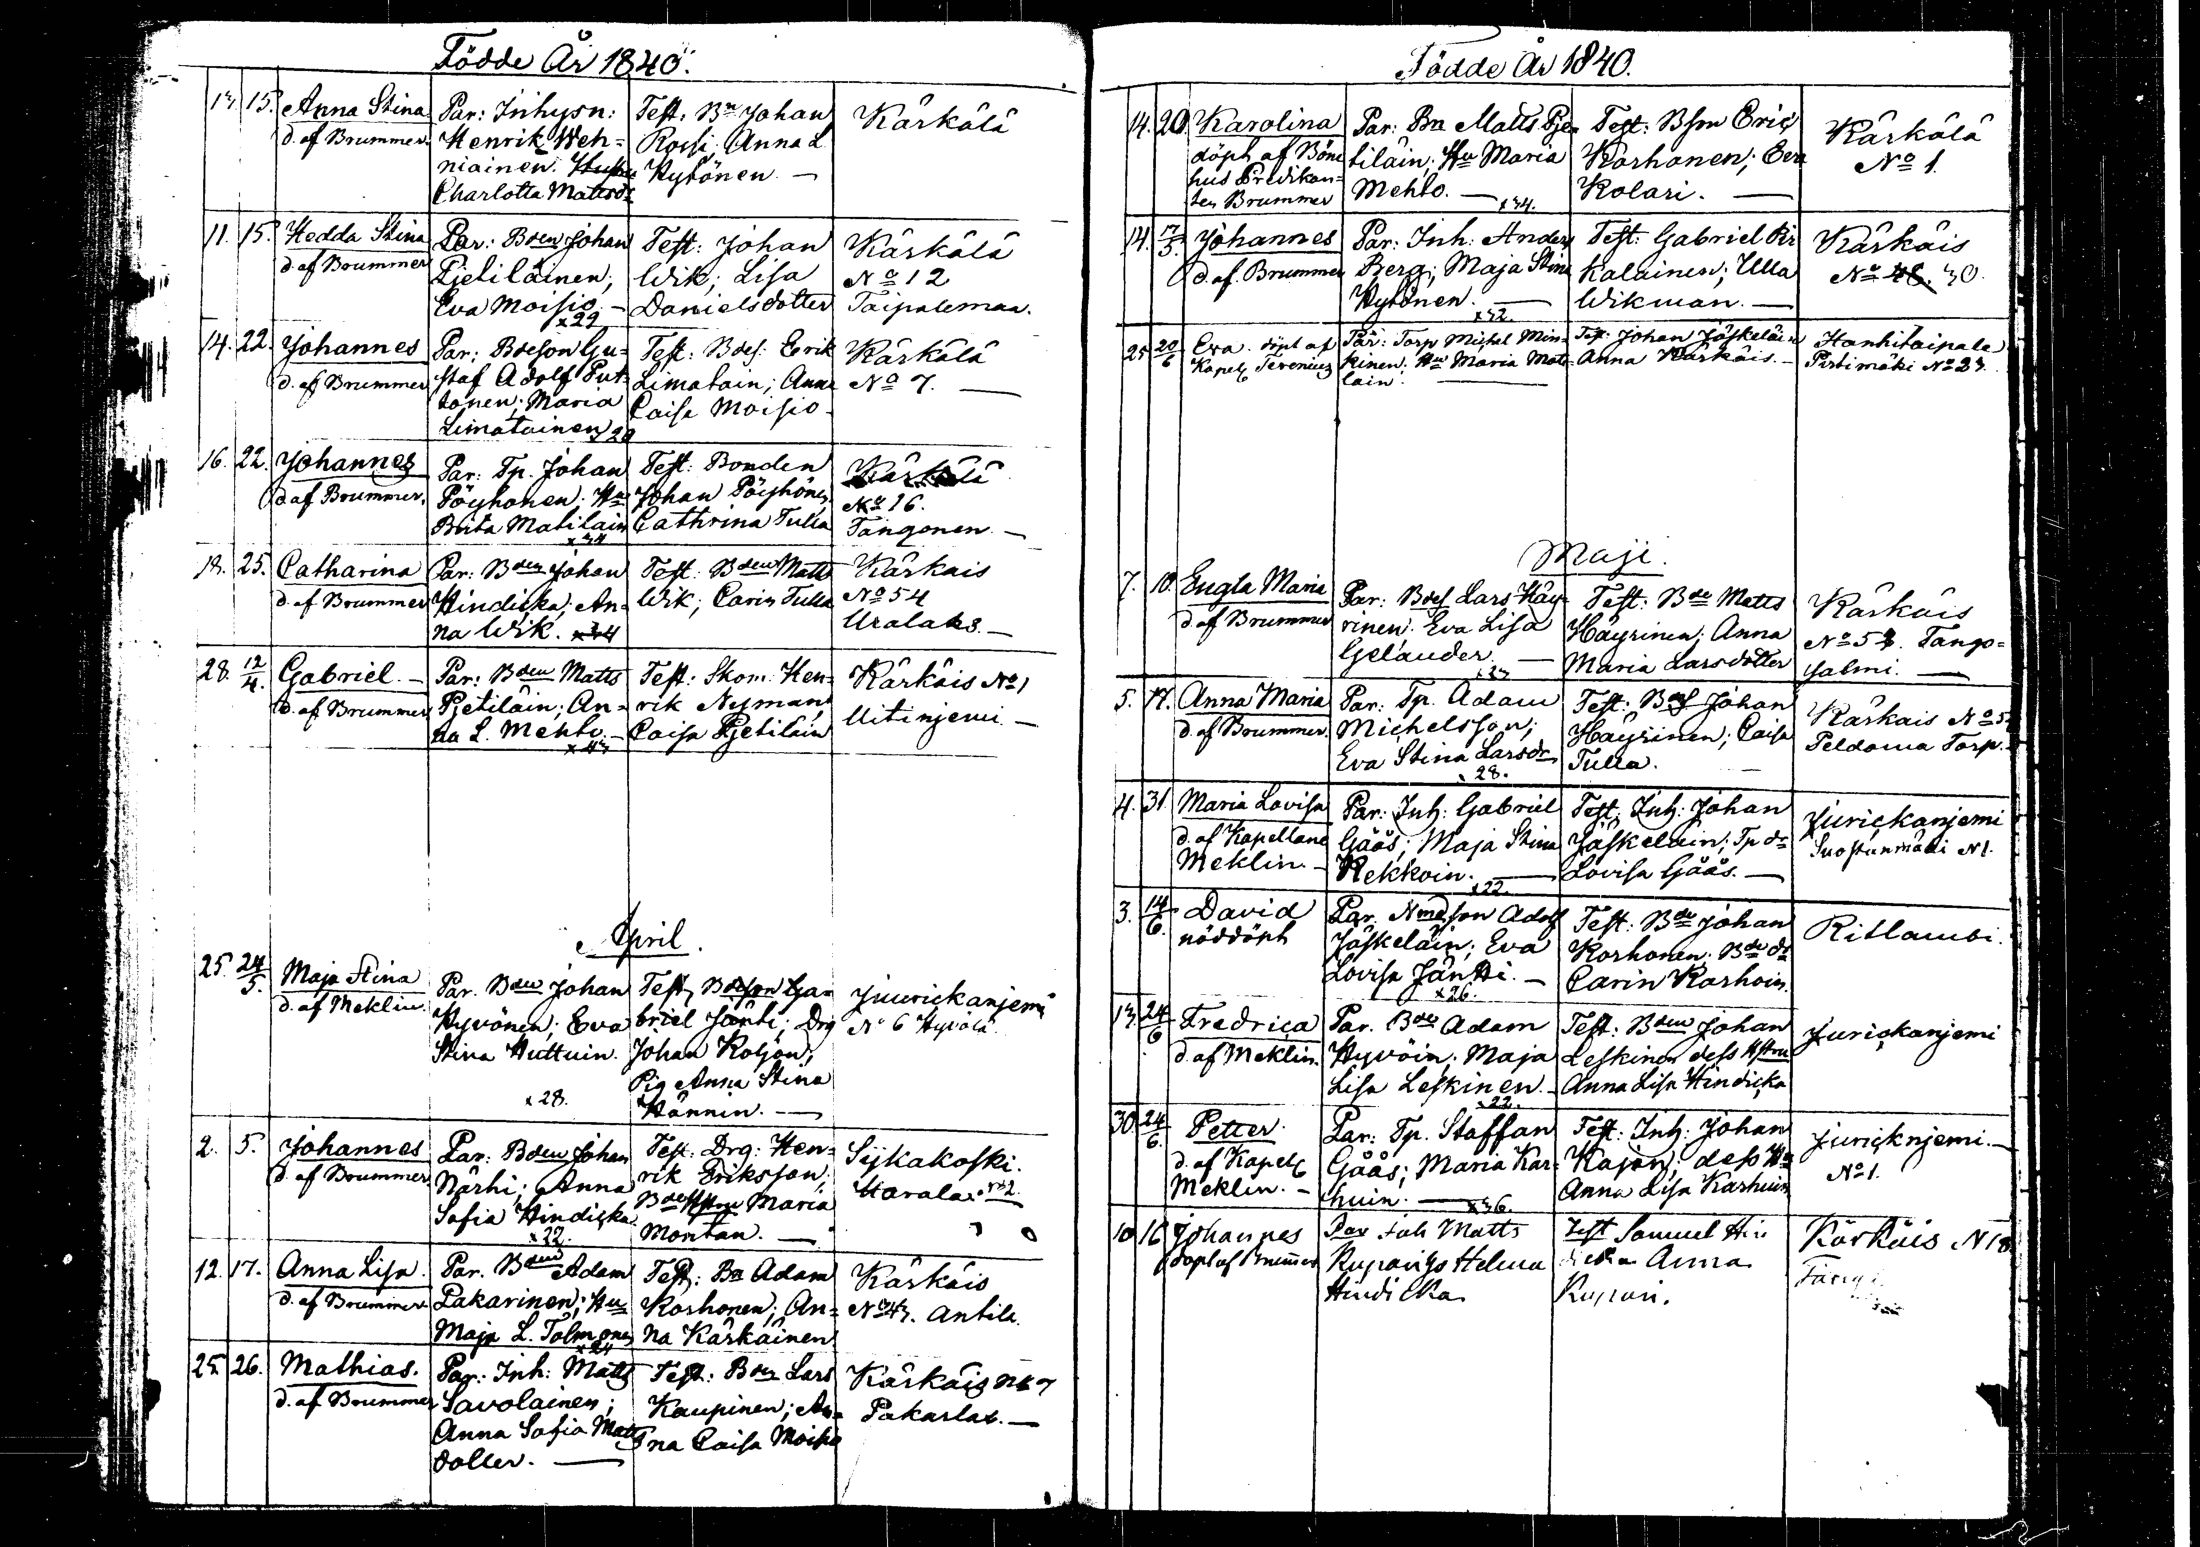 Födde År 1840.
13. 15. Anna Stina
d. af Brummer.
Par: Inhysn:
Henrik Weh=
niainen. Hustru
Charlotta Mattsdr
Test: Bn Johan
Rossi, Anna L.
Kytönen. —
Kärkälä
11. 15. Hedda Stina
d. af Brummer
Par: Bden Johan
Pjetiläinen,
Eva Moisio. —
x 29
Test: Johan
Wik; Lisa
Danielsdotter
Kärkälä
No 12
Taipalemaa.
14. 22. Johannes
d. af Brummer
Par: Bdeson Gu=
staf Adolf Put=
tonen; Maria
Limatainen
x 20
Test: Bdes. Erik
Limatain; Anna
Caisa Moisio
Kärkälä
No 7. —
16. 22. Johannes
d af Brummer.
Par: Tp. Johan
Pöyhonen. Hu
Brita Matilain
x 34
Test: Bonden
Johan Pöyhönen,
Cathrina Tulla
Kärkälä
No 16.
Tangonen —
18. 25. Catharina
d. af Brummer
Par: Bden Johan
Hindicka, An=
na Wik. x 34
Test: Bden Matts
Wik; Carin Tulla
Kärkais
No 54
Uralaks. —
28. 12/4. Gabriel. —
d. af Brummer
Par: Bden Matts
Pjetiläin; An=
na L. Mehto. —
x 43
Test: Skom. Hen=
rik Nyman,
Caisa Pjetiläin
Kärkäis No 1
Uitinjemi —
April.
25. 24/5. Maja Stina
d. af Meklin.
Par. Bden Johan
Hyvönen; Eva
Stina Huttuin.
x 28.
Test, Bdeson Ga=
briel Jänti; Drg
Johan Koljon;
Pig Anna Stina
Hännin. —
Juurickanjemi
No 6 Hyvölä
2. 5. Johannes
d. af Brummer
Par: Bden Johan
Närhi; Anna
Sofia Hindicka
x 22.
Test: Drg: Hen=
rik Eriksson,
Bdehstru Maria
Montan. —
Sijkakoski.
Harala. No 2.
12. 17. Anna Lisa.
d. af Brummer
Par. Bden Adam
Pakarinen; Hu
Maja L. Tolmonen
x 24
Test: Bn Adam
Korhonen; An=
na Kärkäinen
Kärkäis
No 43. Antila.
25. 26. Mathias.
d. af Brummer
Par: Inh: Matts
Savolainen;
Anna Sofia Matts
dotter. —
Test: Bden Lars
Kaupinen; An=
na Caisa Moisio
Kärkäis No 7
Pakarlax. —
Födde År 1840.
14. 20. Karolina
döpt af Böne
hus Predikan=
ten Brummer
Par: Bn Matts Pje=
tiläin; Hu Maria
Mehto. —
x 34.
Test: Bson Eric
Korhonen; Eva
Kolari. —
Kärkälä
No 1.
14. 17/5. Johannes
d. af. Brummer
Par: Inh: Anders
Berg; Maja Stina
Kytönen. —
x 32.
Test: Gabriel Pir
kalainen; Ulla
Wikman. —
Kärkäis
No 48. 30.
25 20/6 Eva. döpt af
Kapel. Terenius
Par: Torp Michel Min=
kinen; Hu Maria Mati=
lain. —
Test: Johan Jäskeläin
Anna Kärkäis. —
Hanhitaipale
Pirtimäki No 23.
Maji.
7. 10. Engla Maria
d af Brummer
Par: Bdes Lars Häy=
rinen. Eva Lisa
Gelander. —
x 23
Test: Bde Matts
Häyrinen; Anna
Maria Larsdotter
Kärkäis
No 52. Tango=
salmi. —
5. 17. Anna Maria
d. af Brummer.
Par: Tp. Adam
Michelsson;
Eva Stina Larsdr
x 28.
Test: Bdes Johan
Häyrinen; Caisa
Tulla. —
Kärkais No 52
Peldoma Torp.
4. 31. Maria Lovisa
d. af Kapellane
Meklin. —
Par: Inh: Gabriel
Gåås; Maja Stina
Kekkoin. —
x 22.
Test. Inh: Johan
Jäskeläin; Tp dr
Lovisa Gåås. —
Jurickanjemi
Suostunmäki No 1.
3. 14/6. David
nöddöpt
Par. Nmdeson Adolf
Jäskeläin; Eva
Lovisa Jäntti. —
x 26.
Test: Bde Johan
Korhonen. Bde dr
Carin Karhoin.
Ritlambi.
13. 24/6 Fredrica
d af Meklin.
Par. Bde Adam
Hyvöin; Maja
Lisa Leskinen. —
x 22.
Test: Bden Johan
Leskinen dess Hstru
Anna Lisa Hindicka
Jurickanjemi
30. 24/6. Petter.
d. af Kapel
Meklin. —
Par: Tp. Staffan
Gåås; Maria Kar=
huin. —
x 36.
Test: Inh: Johan
Kajan; dess Hu
Anna Lisa Karhuin
Jurickniemi. —
No 1.
10 16 Johannes
döpt af Brumer
Par Inh Matts
Kuparigs Helena
Hindicka
Test Samuel Hin
dicka Anna
Kupari.
Kärkäis N 18